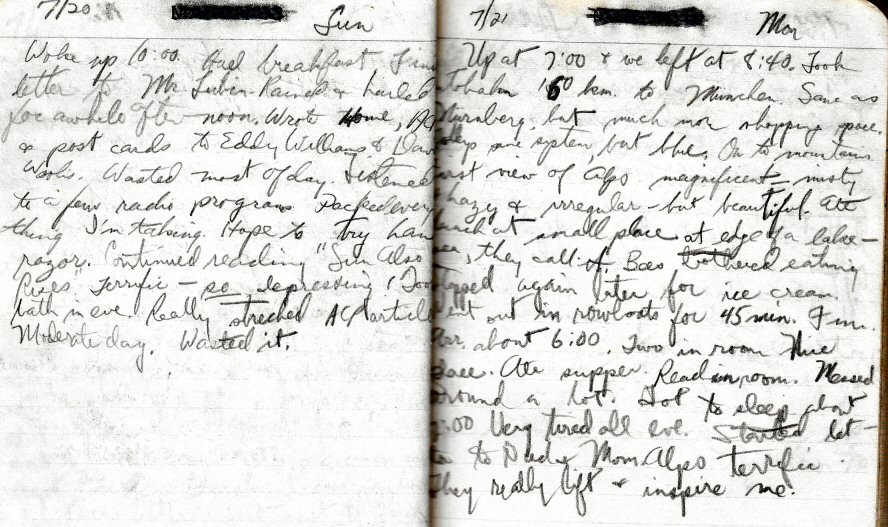 7/20
Sun
Woke up 10:00. Had breakfast
letter to Mr. Lubin. Rained & hailed
for awhile after noon. Wrote Home,
& post cards to Eddy Williams & Dave
Wasted most of day. Listened
to a few radio programs. Packed every
thing I'm taking. Hope to try
razor. Continued reading "Sun Also
Rises" Terrific – so depressing! Took
bath in eve. Really streched article
Moderate day. Wasted it.
7/21
Mon
Up at 7:00 & we left at 8:40. Took
160 km. to Munchen. Same as
Nürnberg, but much more shopping space.
same system, but blue. On to mountains
first view of Alps magnificent – misty
hazy & irregular – but beautiful. Ate
lunch at small place at edge of a lake –
, they call it. Bees bothered eating
stopped again later for ice cream.
Went out in rowboats for 45 min. Fun.
about 6:00. Two in room Nice
place. Ate supper. Read in room. Messed
around a lot. Got to sleep about
:00 Very tired all eve. Started let-
ter to Dad & Mom. Alps terrific.
They really lift & inspire me.